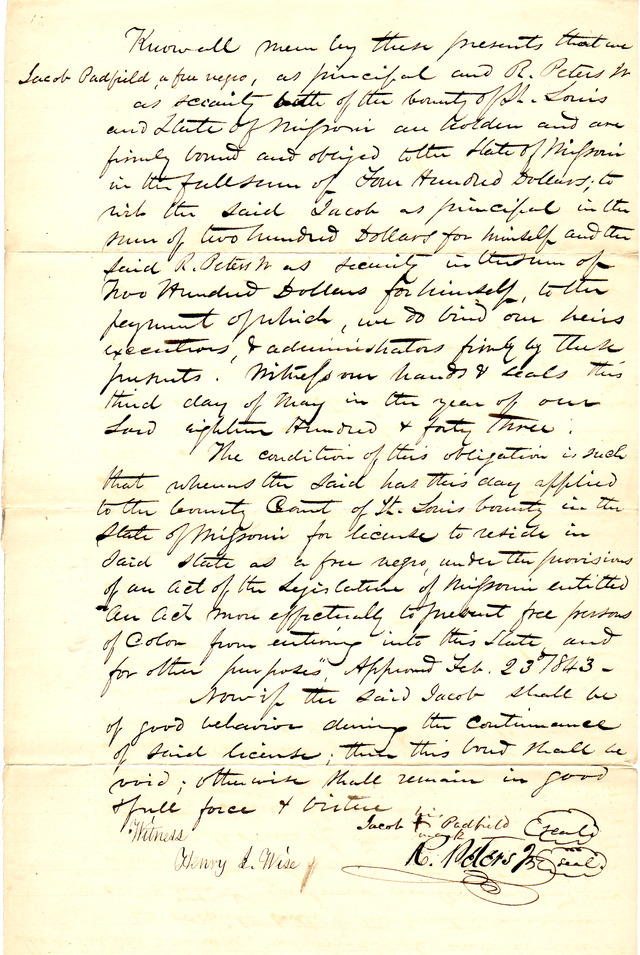 Know all men by these presents that we
Jacob Padfield, a free negro, as principal and R. Peters Jr
as security both of the County of St. Louis
and State of Missouri are holden and are
firmly bound and obliged to the State of Missouri
in the full sum of Four Hundred Dollars; to
wit the said Jacob as principal in the
sum of two hundred Dollars for himself and the
said R. Peters Jr as security in the sum of
Two Hundred Dollars for himself, to the
payment of which, we do bind our heirs
executors, & administrators firmly by these
presents. Witness our hands & seals this
third day of May in the year of our
Lord eighteen Hundred & forty three.
The condition of this obligation is such
that whereas the said has this day applied
to the County Court of St. Louis County in the
State of Missouri for license to reside in
said state as a free negro, under the provisions
of an Act of the Legislature of Missouri entitled
"An Act more effectually to prevent free persons
of Color from entering into this State, and
for other purposes", Approved Feb. 23d 1843 -
Now if the said Jacob shall be
of good behavior during the continuance
of said license; then this bond shall be
void; otherwise shall remain in good
& full force & virtue
his
Jacob + Padfield (seal)
mark
Witness
Henry S. Wise
R. Peters Jr (seal)